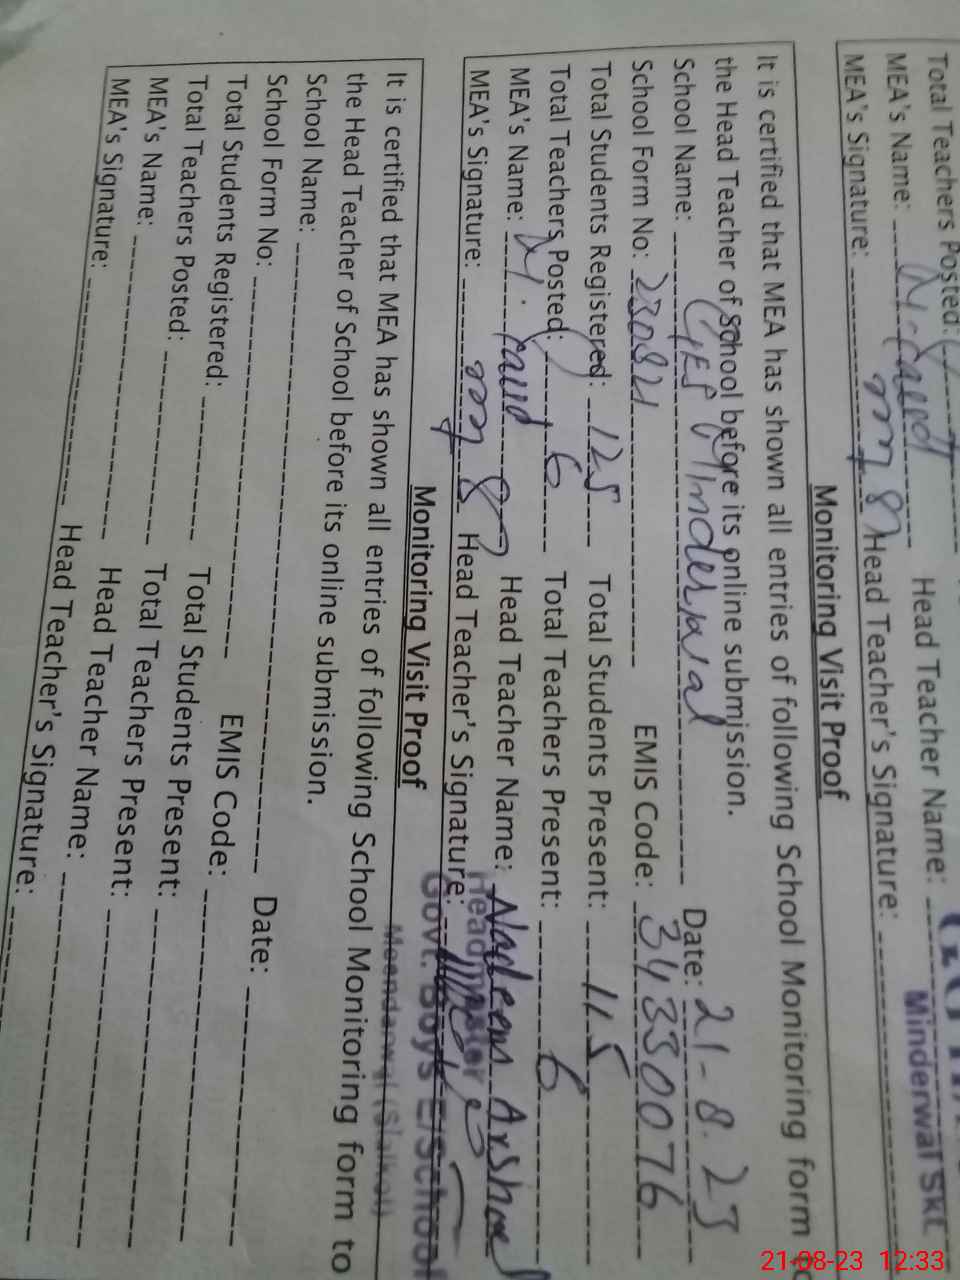 Total Teachers Posted:
MEA's Name: Head Teacher Name:
MEA's Signature: Head Teacher's Signature:
Minderwal Skt.
Monitoring Visit Proof
It is certified that MEA has shown all entries of following School Monitoring form to
the Head Teacher of School before its online submission.
School Name: GES Minderwal Date: 21-8-23
School Form No: 230821 EMIS Code: 34330076
Total Students Registered: 125 Total Students Present: 115
Total Teachers Posted: 6 Total Teachers Present: 6
MEA's Name: Head Teacher Name: Nadeem Arshad
MEA's Signature: Head Teacher's Signature:
Headmaster
Govt. Boys E/School
Meendarwal (Sialkot)
Monitoring Visit Proof
It is certified that MEA has shown all entries of following School Monitoring form to
the Head Teacher of School before its online submission.
School Name: Date:
School Form No: EMIS Code:
Total Students Registered: Total Students Present:
Total Teachers Posted: Total Teachers Present:
MEA's Name: Head Teacher Name:
MEA's Signature: Head Teacher's Signature:
21-08-23 12:33